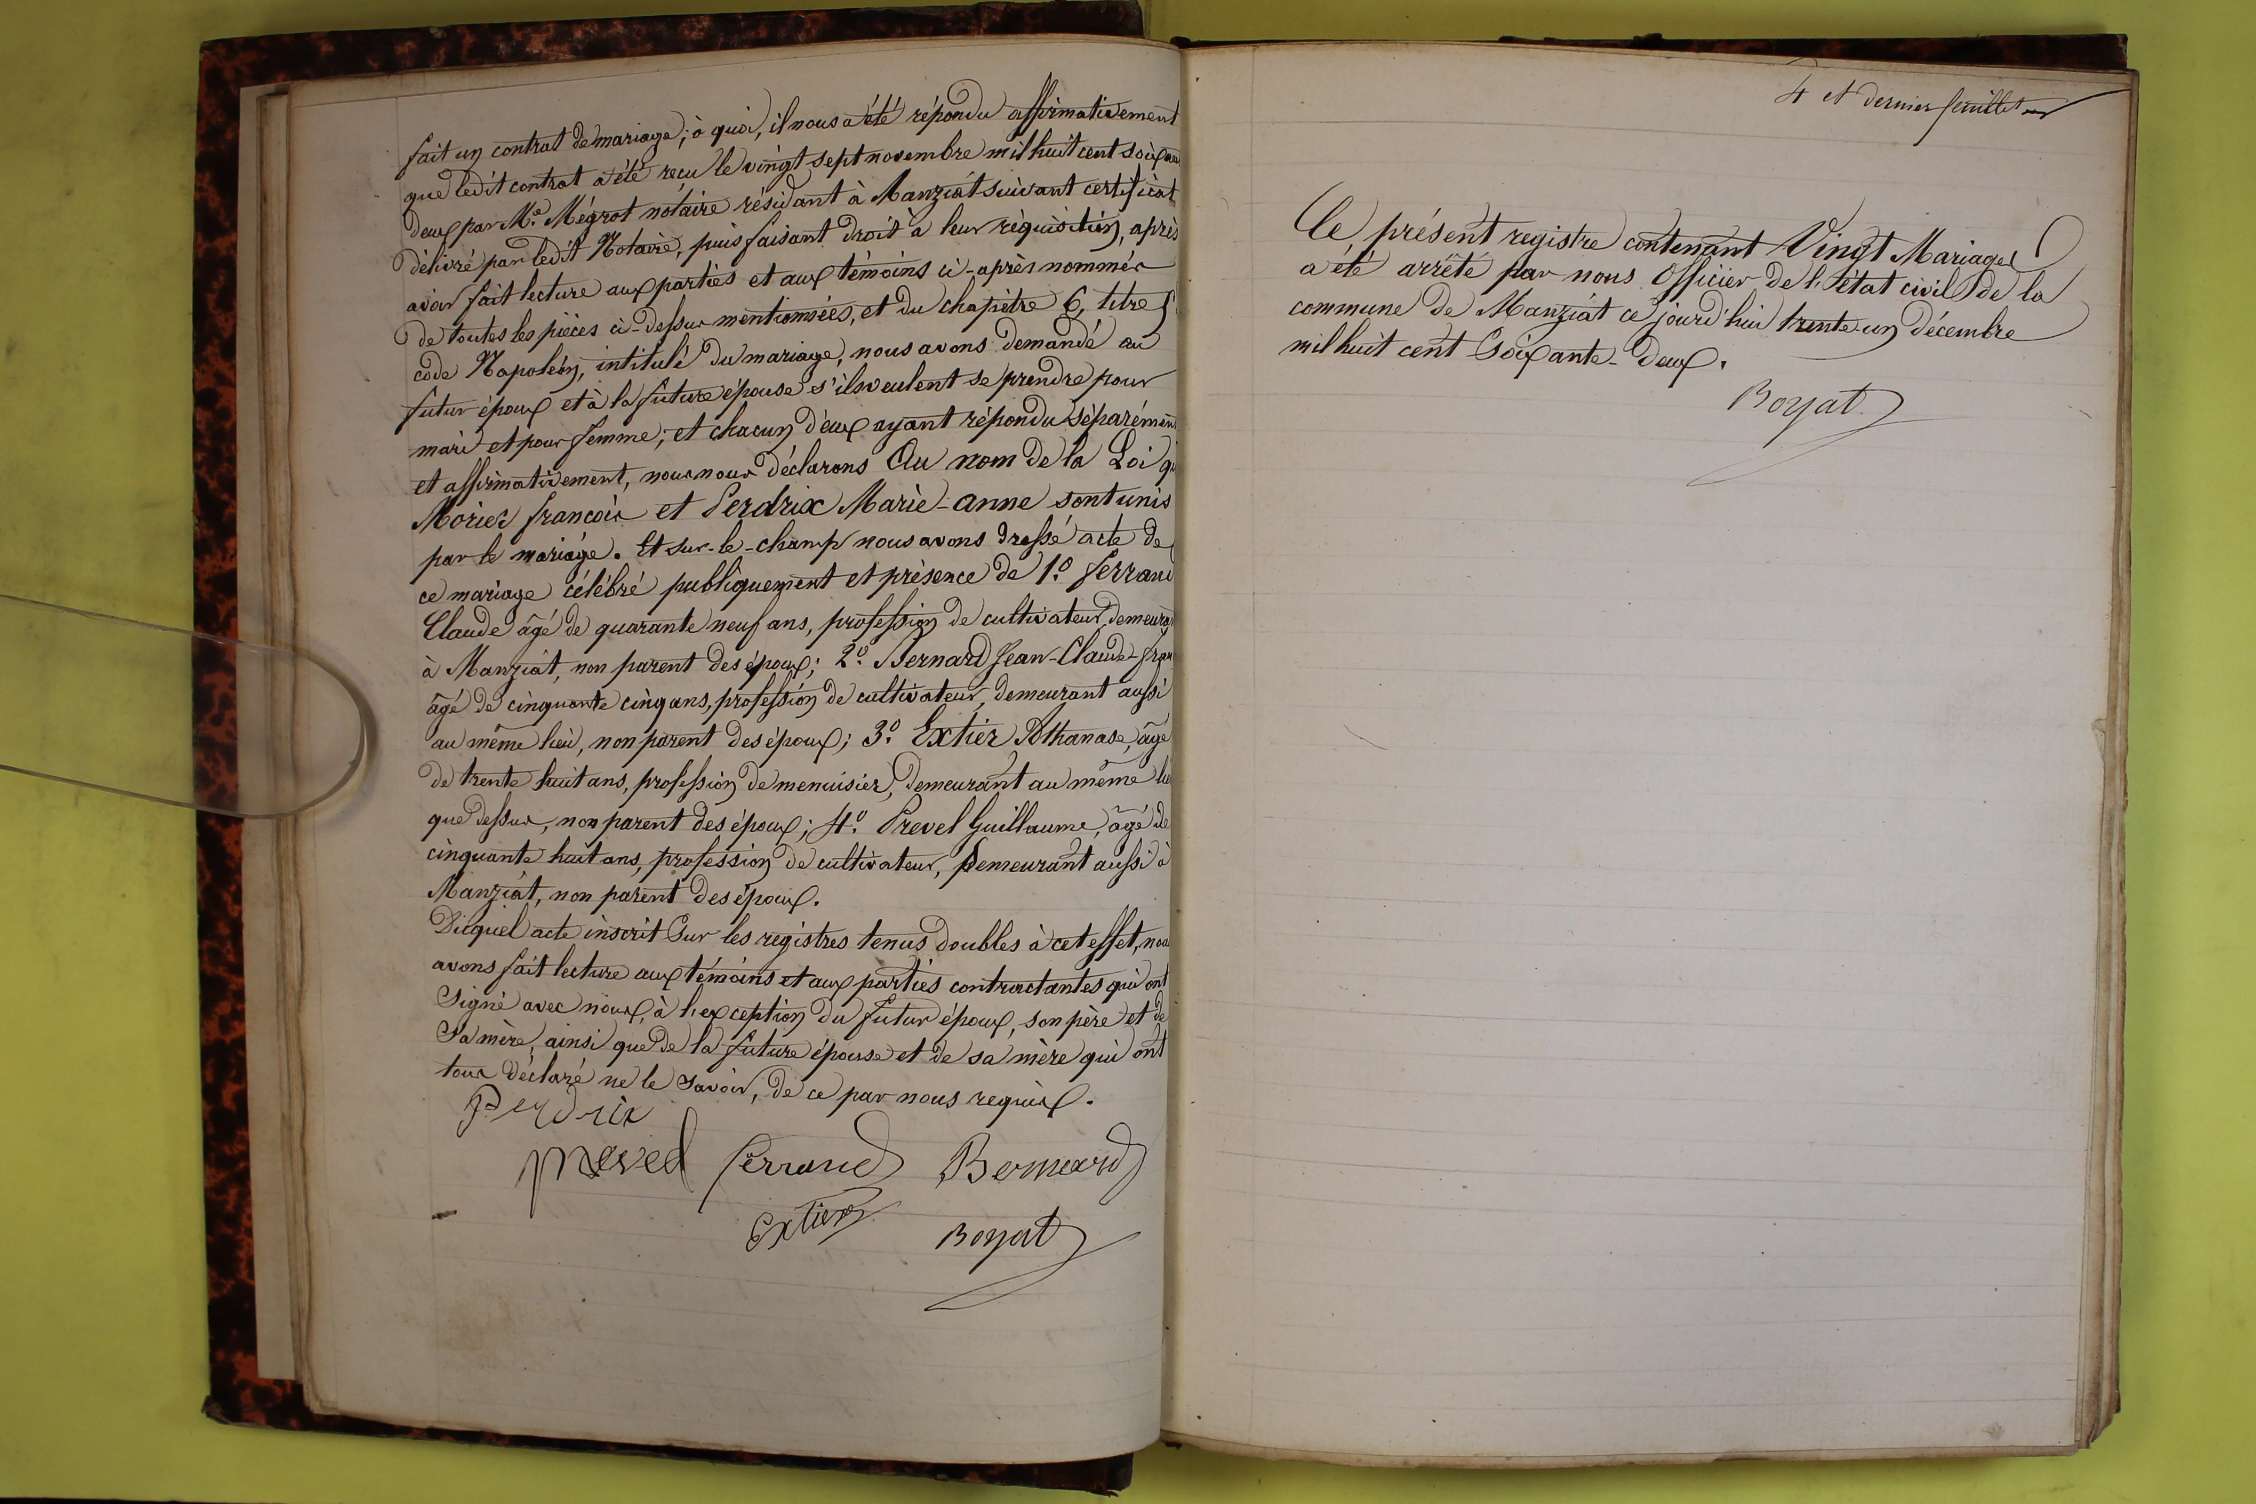 fait un contrat de mariage; à quoi, il nous a été répondu affirmativement
que ledit contrat a été reçu le vingt sept novembre mil huit cent soixante
deux par Me. Mégrot notaire résidant à Manziat suivant certificat
délivré par ledit Notaire, puis faisant droit à leur réquisition, après
avoir fait lecture aux parties et aux témoins ci-après nommés
de toutes les pièces ci-dessus mentionnées, et du chapitre 6, titre 5
code Napoléon, intitulé du mariage, nous avons demandé au
futur époux et à la future épouse s'ils veulent se prendre pour
mari et pour femme; et chacun d'eux ayant répondu séparément
et affirmativement, nous nous déclarons Au nom de la Loi qu
Morier françois et Perdrix Marie-anne sont unis
par le mariage. Et sur-le-champ nous avons dressé acte de
ce mariage célébré publiquement et présence de 1.o Ferrand
Claude âgé de quarante neuf ans, profession de cultivateur demeurant
à Manziat, non parent des époux; 2.o Bernard Jean-Claude-fran
âgé de cinquante cinq ans, profession de cultivateur, demeurant aussi
au même lieu, non parent des époux; 3.o Extier Athanase, âgé
de trente huit ans, profession de menuisier, demeurant au même lie
que dessus, non parent des époux; 4.o Prevel Guillaume, âgé de
cinquante huit ans, profession de cultivateur, demeurant aussi à
Manziat, non parent des époux.
Duquel acte inscrit sur les registres tenus doubles à cet effet, nous
avons fait lecture aux témoins et aux parties contractantes qui ont
signé avec nous, à l'exception du futur époux, son père et de
sa mère, ainsi que de la future épouse et de sa mère qui ont
tous déclaré ne le savoir, de ce par nous requis.
Perdrix
prevel ferrand Bernard
Extier Boyat
4 et dernier feuillet
Ce présent registre contenant Vingt Mariages
a été arrêté par nous Officier de l'état civil de la
commune de Manziat ce jourd'hui trente-un décembre
mil huit cent soixante-deux.
Boyat